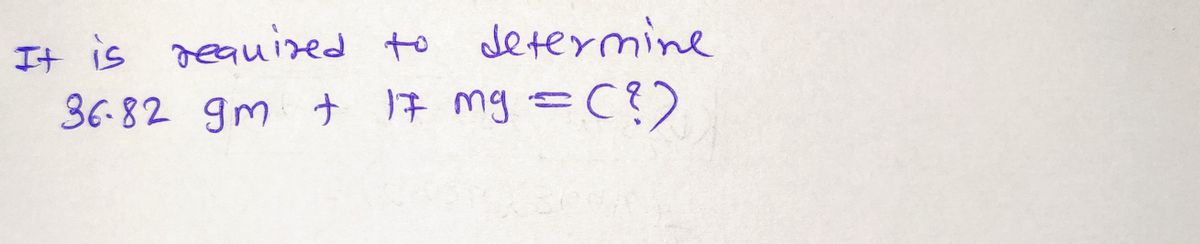 It is required to determine
36.82 gm + 17 mg = (?)